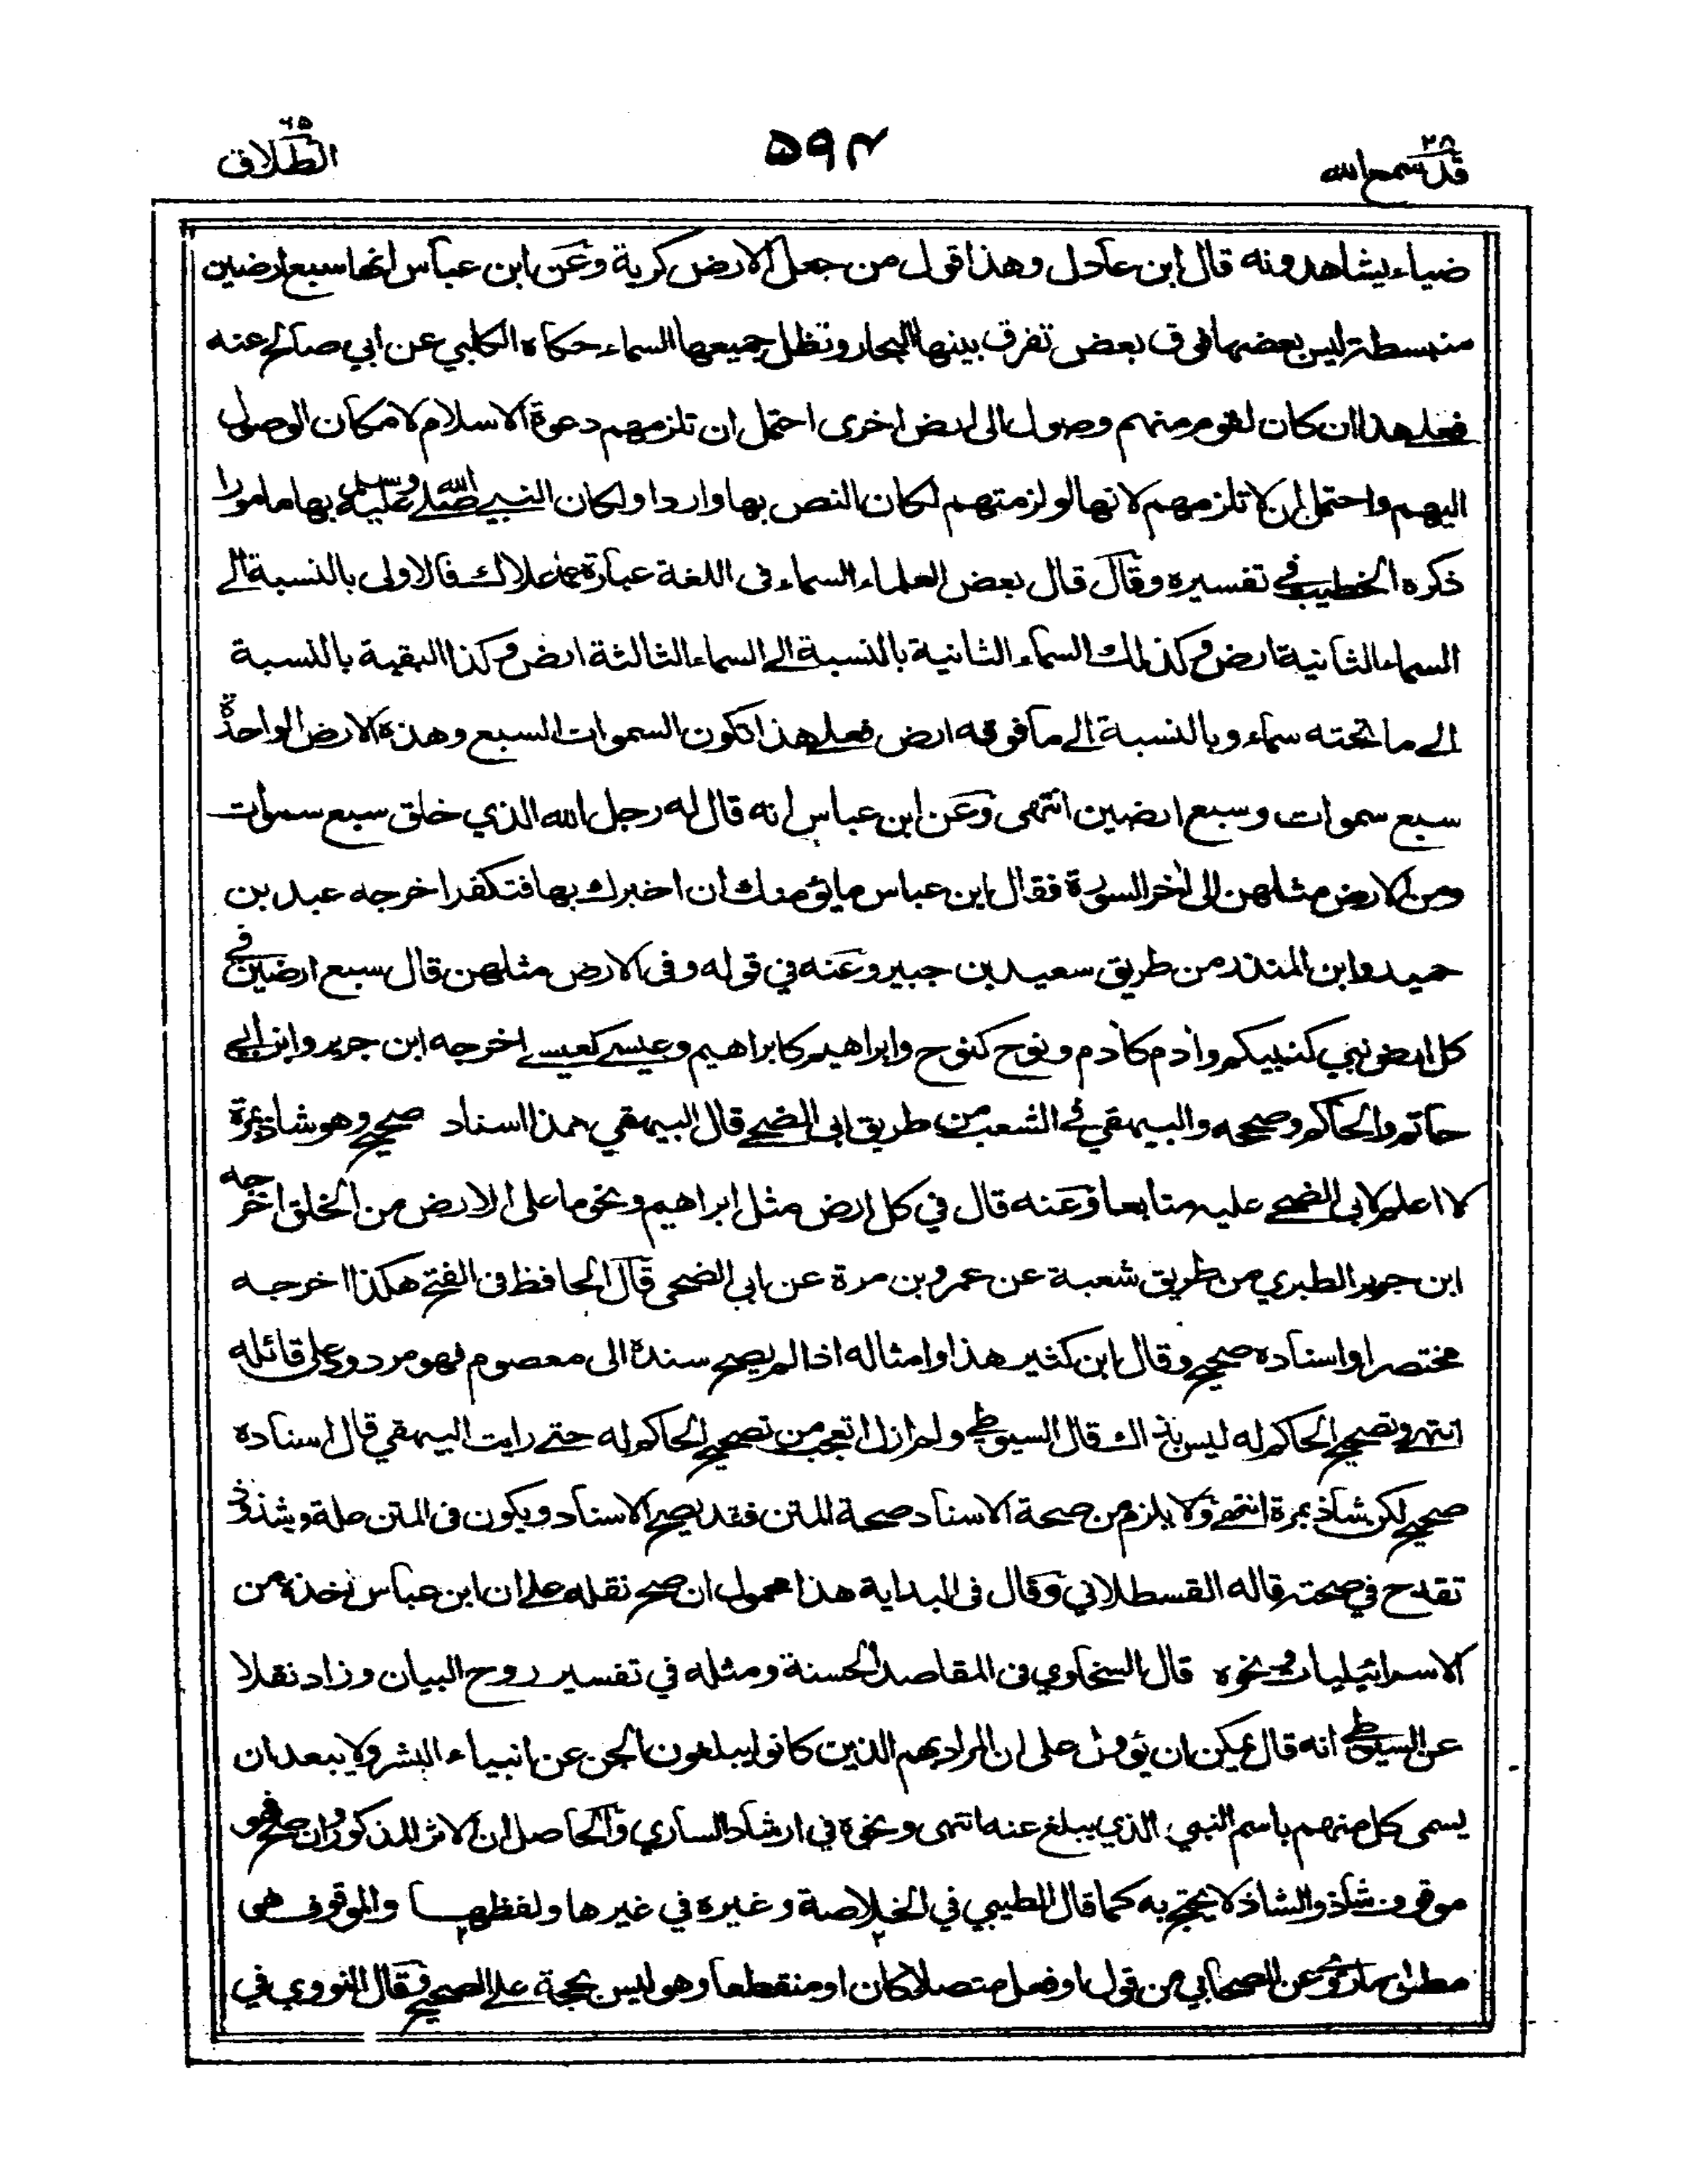 قد سمع الله ٢٨
٥٩٤
الطلاق ٦٥
ضياء يشاهدونه قال ابن عادل وهذا قول من جعل الارض كرية وعن ابن عباس انها سبع ارضين
منبسطة ليس بعضها فوق بعض تفرق بينها البحار وتظل جميعها السماء حكاه الكلبي عن ابي صالح عنه
فعلى هذا ان كان لقوم منهم وصول الى ارض اخرى احتمل ان تلزمهم دعوة الاسلام لامكان الوصول
اليهم واحتمل ان لا تلزمهم لانها لو لزمتهم لكان النص بها واردا ولكان النبي صلى الله عليه وسلم بها مامورا
ذكره الخطيب في تفسيره وقال قال بعض العلماء السماء في اللغة عبارة عما علاك فالاولى بالنسبة الى
السماء الثانية ارض وكذلك السماء الثانية بالنسبة الى السماء الثالثة ارض وكذا البقية بالنسبة
الى ما تحته سماء وبالنسبة الى ما فوقه ارض فعلى هذا تكون السموات السبع وهذه الارض الواحدة
سبع سموات وسبع ارضين انتهى وعن ابن عباس انه قال له رجل الله الذي خلق سبع سموات
ومن الارض مثلهن الى اخر السورة فقال ابن عباس ما يؤمنك ان اخبرك بها فتكفر اخرجه عبد بن
حميد وابن المنذر من طريق سعيد بن جبير وعنه في قوله وفى الارض مثلهن قال سبع ارضين في
كل ارض نبي كنبيكم وادم كادم ونوح كنوح وابراهيم كابراهيم وعيسى كعيسى اخرجه ابن جرير وابن ابي
حاتم والحاكم وصححه والبيهقي في الشعب من طريق ابي الضحى قال البيهقي هذا اسناد صحيح وهو شاذ بمرة
لا اعلم لابي الضحى عليه متابعا وعنه قال في كل ارض مثل ابراهيم ونحو ما على الارض من الخلق اخرجه
ابن جرير الطبري من طريق شعبة عن عمرو بن مرة عن ابي الضحى قال الحافظ فى الفتح هكذا اخرجه
مختصرا واسناده صحيح وقال ابن كثير هذا وامثاله اذا لم يصح سنده الى معصوم فهو مردود على قائله
انتهى وتصحيح الحاكم له ليس بذاك قال السيوطي ولم ازل اتعجب من تصحيح الحاكم له حتى رايت البيهقي قال اسناده
صحيح لكن شاذ بمرة انتهى ولا يلزم من صحة الاسناد صحة المتن فقد يصح الاسناد ويكون فى المتن علة وشذوذ
تقدح في صحته قاله القسطلاني وقال فى البداية هذا محمول ان صح نقله على ان ابن عباس اخذه من
الاسرائيليات ونحوه قال السخاوي فى المقاصد الحسنة ومثله في تفسير روح البيان وزاد نقلا
عن السيوطي انه قال يمكن ان يؤول على ان المراد بهم الذين كانوا يبلغون الجن عن انبياء البشر ولا يبعد ان
يسمى كل منهم باسم النبي الذي يبلغ عنه انتهى ونحوه في ارشاد الساري والحاصل ان الاثر المذكور وان صح فهو
موقوف شاذ والشاذ لا يحتج به كما قال الطيبي في الخلاصة وغيره في غيرها ولفظها والموقوف هى
مطلق ما روي عن الصحابي من قول او فعل متصلا كان او منقطعا وهو ليس بحجة على الصحيح وقال النووي في